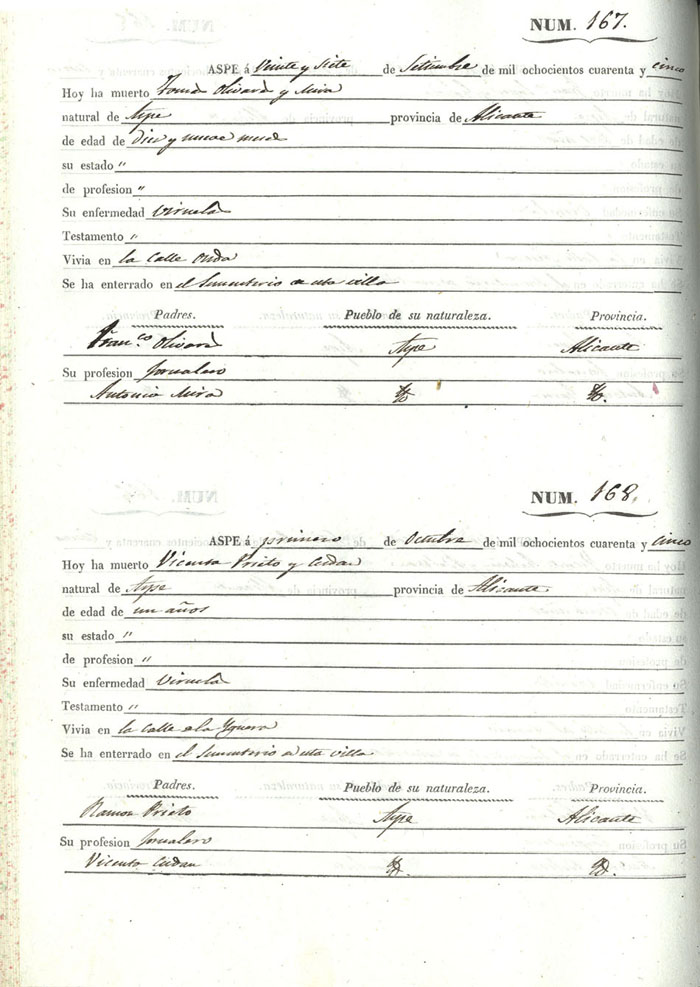 NUM. 167.
ASPE á Veinte y Siete de Setiembre de mil ochocientos cuarenta y cinco
Hoy ha muerto Tomas Olivará y Mira
natural de Aspe provincia de Alicante
de edad de Diez y nueve meces
su estado "
de profesion "
Su enfermedad Viruela
Testamento "
Vivia en la Calle Onda
Se ha enterrado en el Sementerio de esta villa
Padres. Pueblo de su naturaleza. Provincia.
Franco Olivará Aspe Alicante
Su profesion Jornalero
Antonia Mira
NUM. 168.
ASPE á primero de Octubre de mil ochocientos cuarenta y cinco
Hoy ha muerto Vicenta Prieto y
natural de Aspe provincia de Alicante
de edad de un años
su estado "
de profesion "
Su enfermedad Viruela
Testamento "
Vivia en la Calle
Se ha enterrado en el Sementerio de esta villa
Padres. Pueblo de su naturaleza. Provincia.
Ramon Prieto Aspe Alicante
Su profesion Jornalero
Vicenta